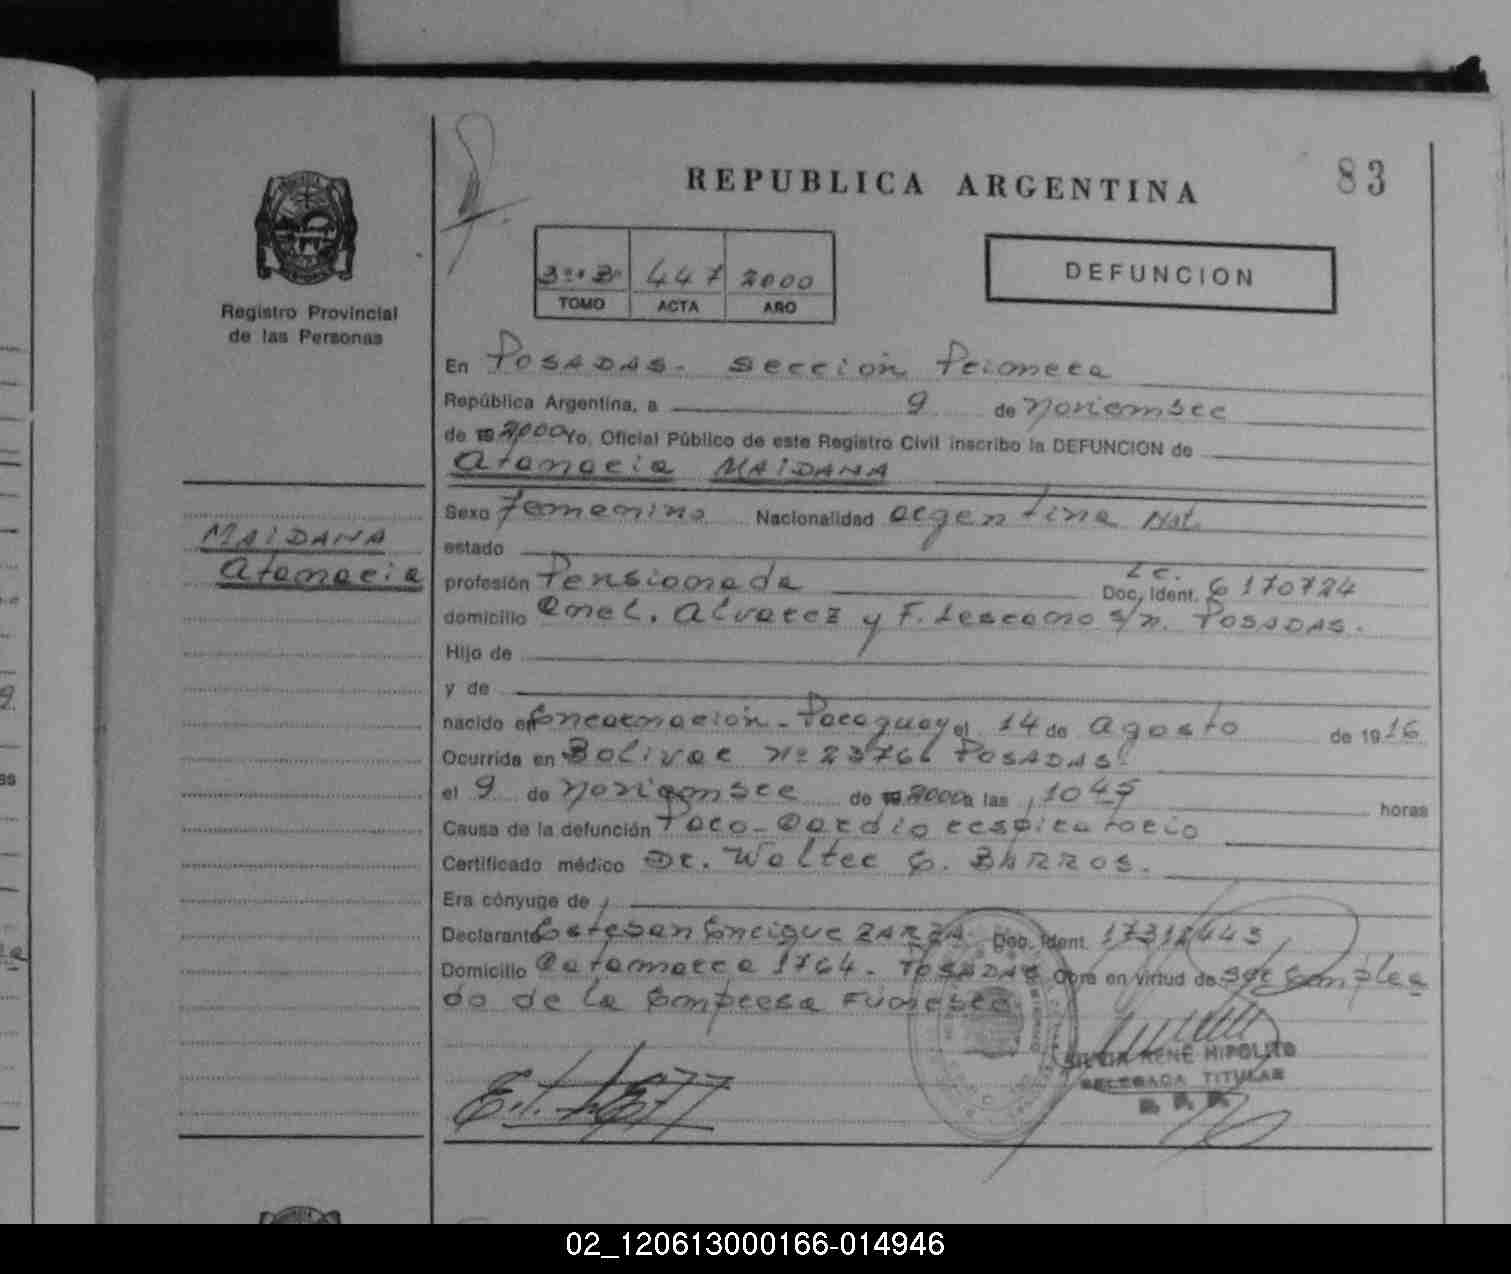 83
REPUBLICA ARGENTINA
3º B 447 2000
TOMO ACTA AÑO
DEFUNCION
Registro Provincial
de las Personas
En POSADAS. sección Primera
República Argentina, a 9 de Noviembre
de 19 2000 Yo, Oficial Público de este Registro Civil inscribo la DEFUNCION de
Atanacia MAIDANA
MAIDANA
Atanacia
Sexo Femenino Nacionalidad argentina Nat.
estado
profesión Pensionada Doc. Ident. L c. 6170724
domicilio Cnel. Alvarez y F. Lescano s/n. POSADAS.
Hijo de
y de
nacido en Encarnación - Paraguay el 14 de Agosto de 1916
Ocurrida en Bolivar Nº 23766 POSADAS.
el 9 de Noviembre de 19 2000 a las 1045 horas
Causa de la defunción Paro-Cardio respiratorio
Certificado médico Dr. Walter G. BARROS.
Era cónyuge de
Declarante Esteban Enrique ZARZA Doc. Ident. 17312443
Domicilio Catamarca 1764. POSADAS Obra en virtud de ser Emplea
do de la Empresa Funebre
SILVIA RENE HIPOLITO
DELEGADA TITULAR
R. P. P.
02_120613000166-014946